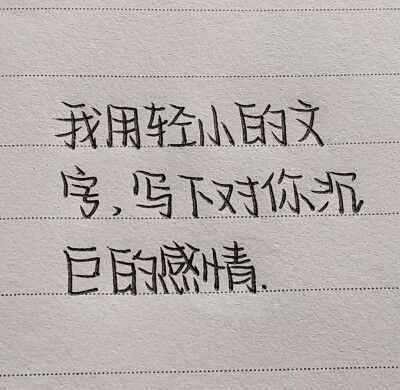 我用轻小的文
字，写下对你沉
巨的感情.